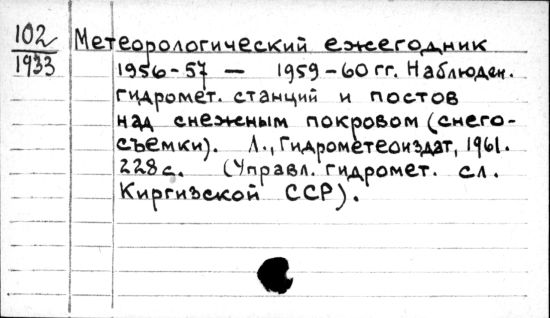 102
1933
Метеорологический ежегодник
1956-57 — 1959-60 гг. Наблюден.
гидромет. станций и постов
над снежным покровом (снего-
съемки). Л., Гидрометеоиздат, 1961.
228 с. (Управл. гидромет. сл.
Киргизской ССР).